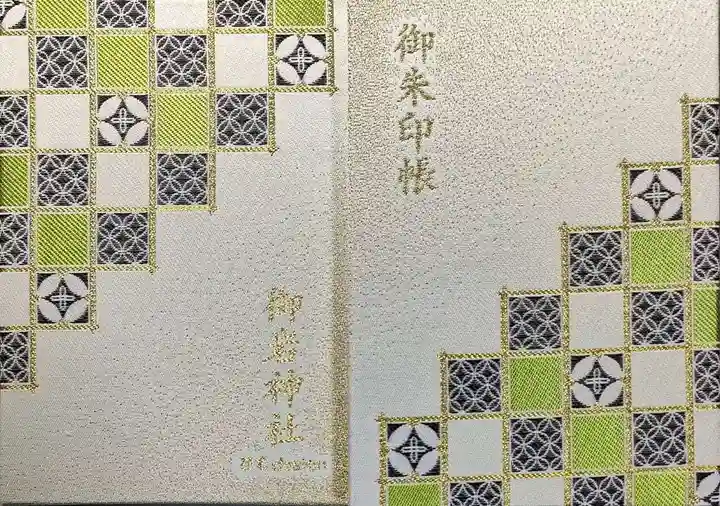 御朱印帳
御岩神社